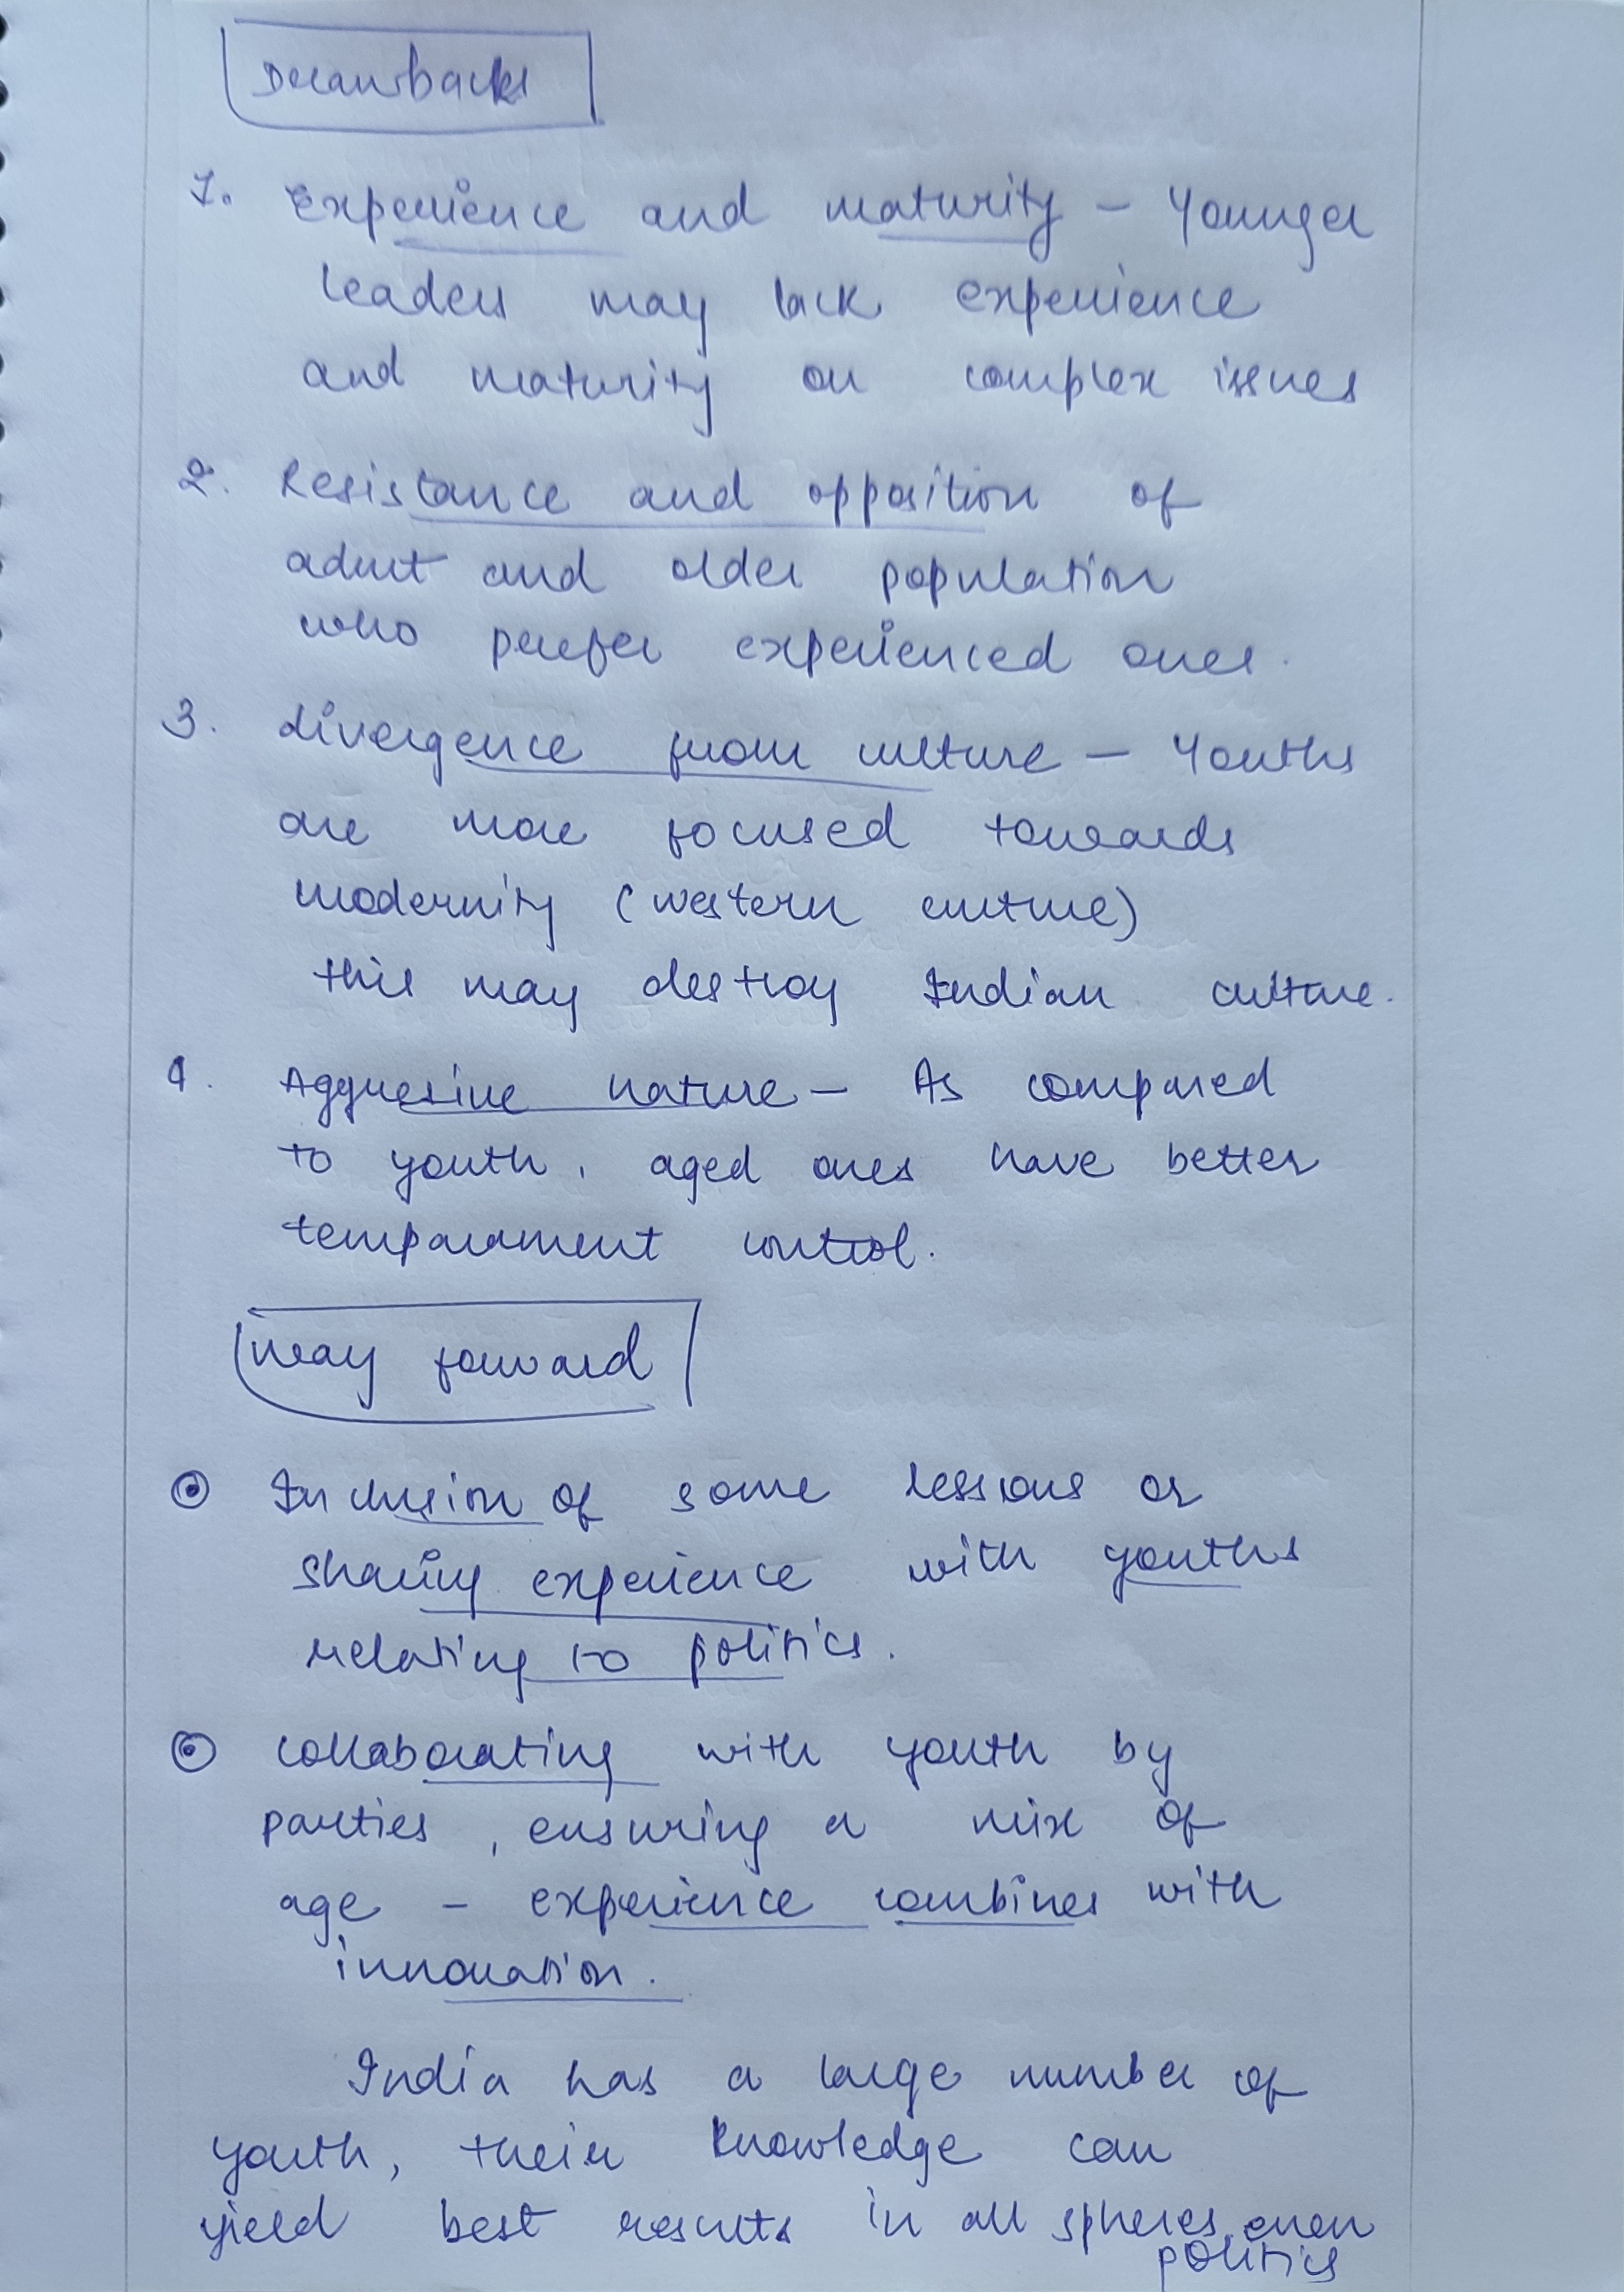 Drawbacks
1. Experience and maturity – Younger
leaders may lack experience
and maturity on complex issues
2. Resistance and opposition of
adult and older population
who prefer experienced ones.
3. divergence from culture – Youths
are more focused towards
modernity (western culture)
this may destroy Indian culture.
4. Aggresive nature – As compared
to youth, aged ones have better
temparament control.
way forward
Inclusion of some lessons or
sharing experience with youths
relating to politics.
collaborating with youth by
parties, ensuring a mix of
age – experience combines with
innovation.
India has a large number of
youth, their knowledge can
yield best results in all spheres, even
politics